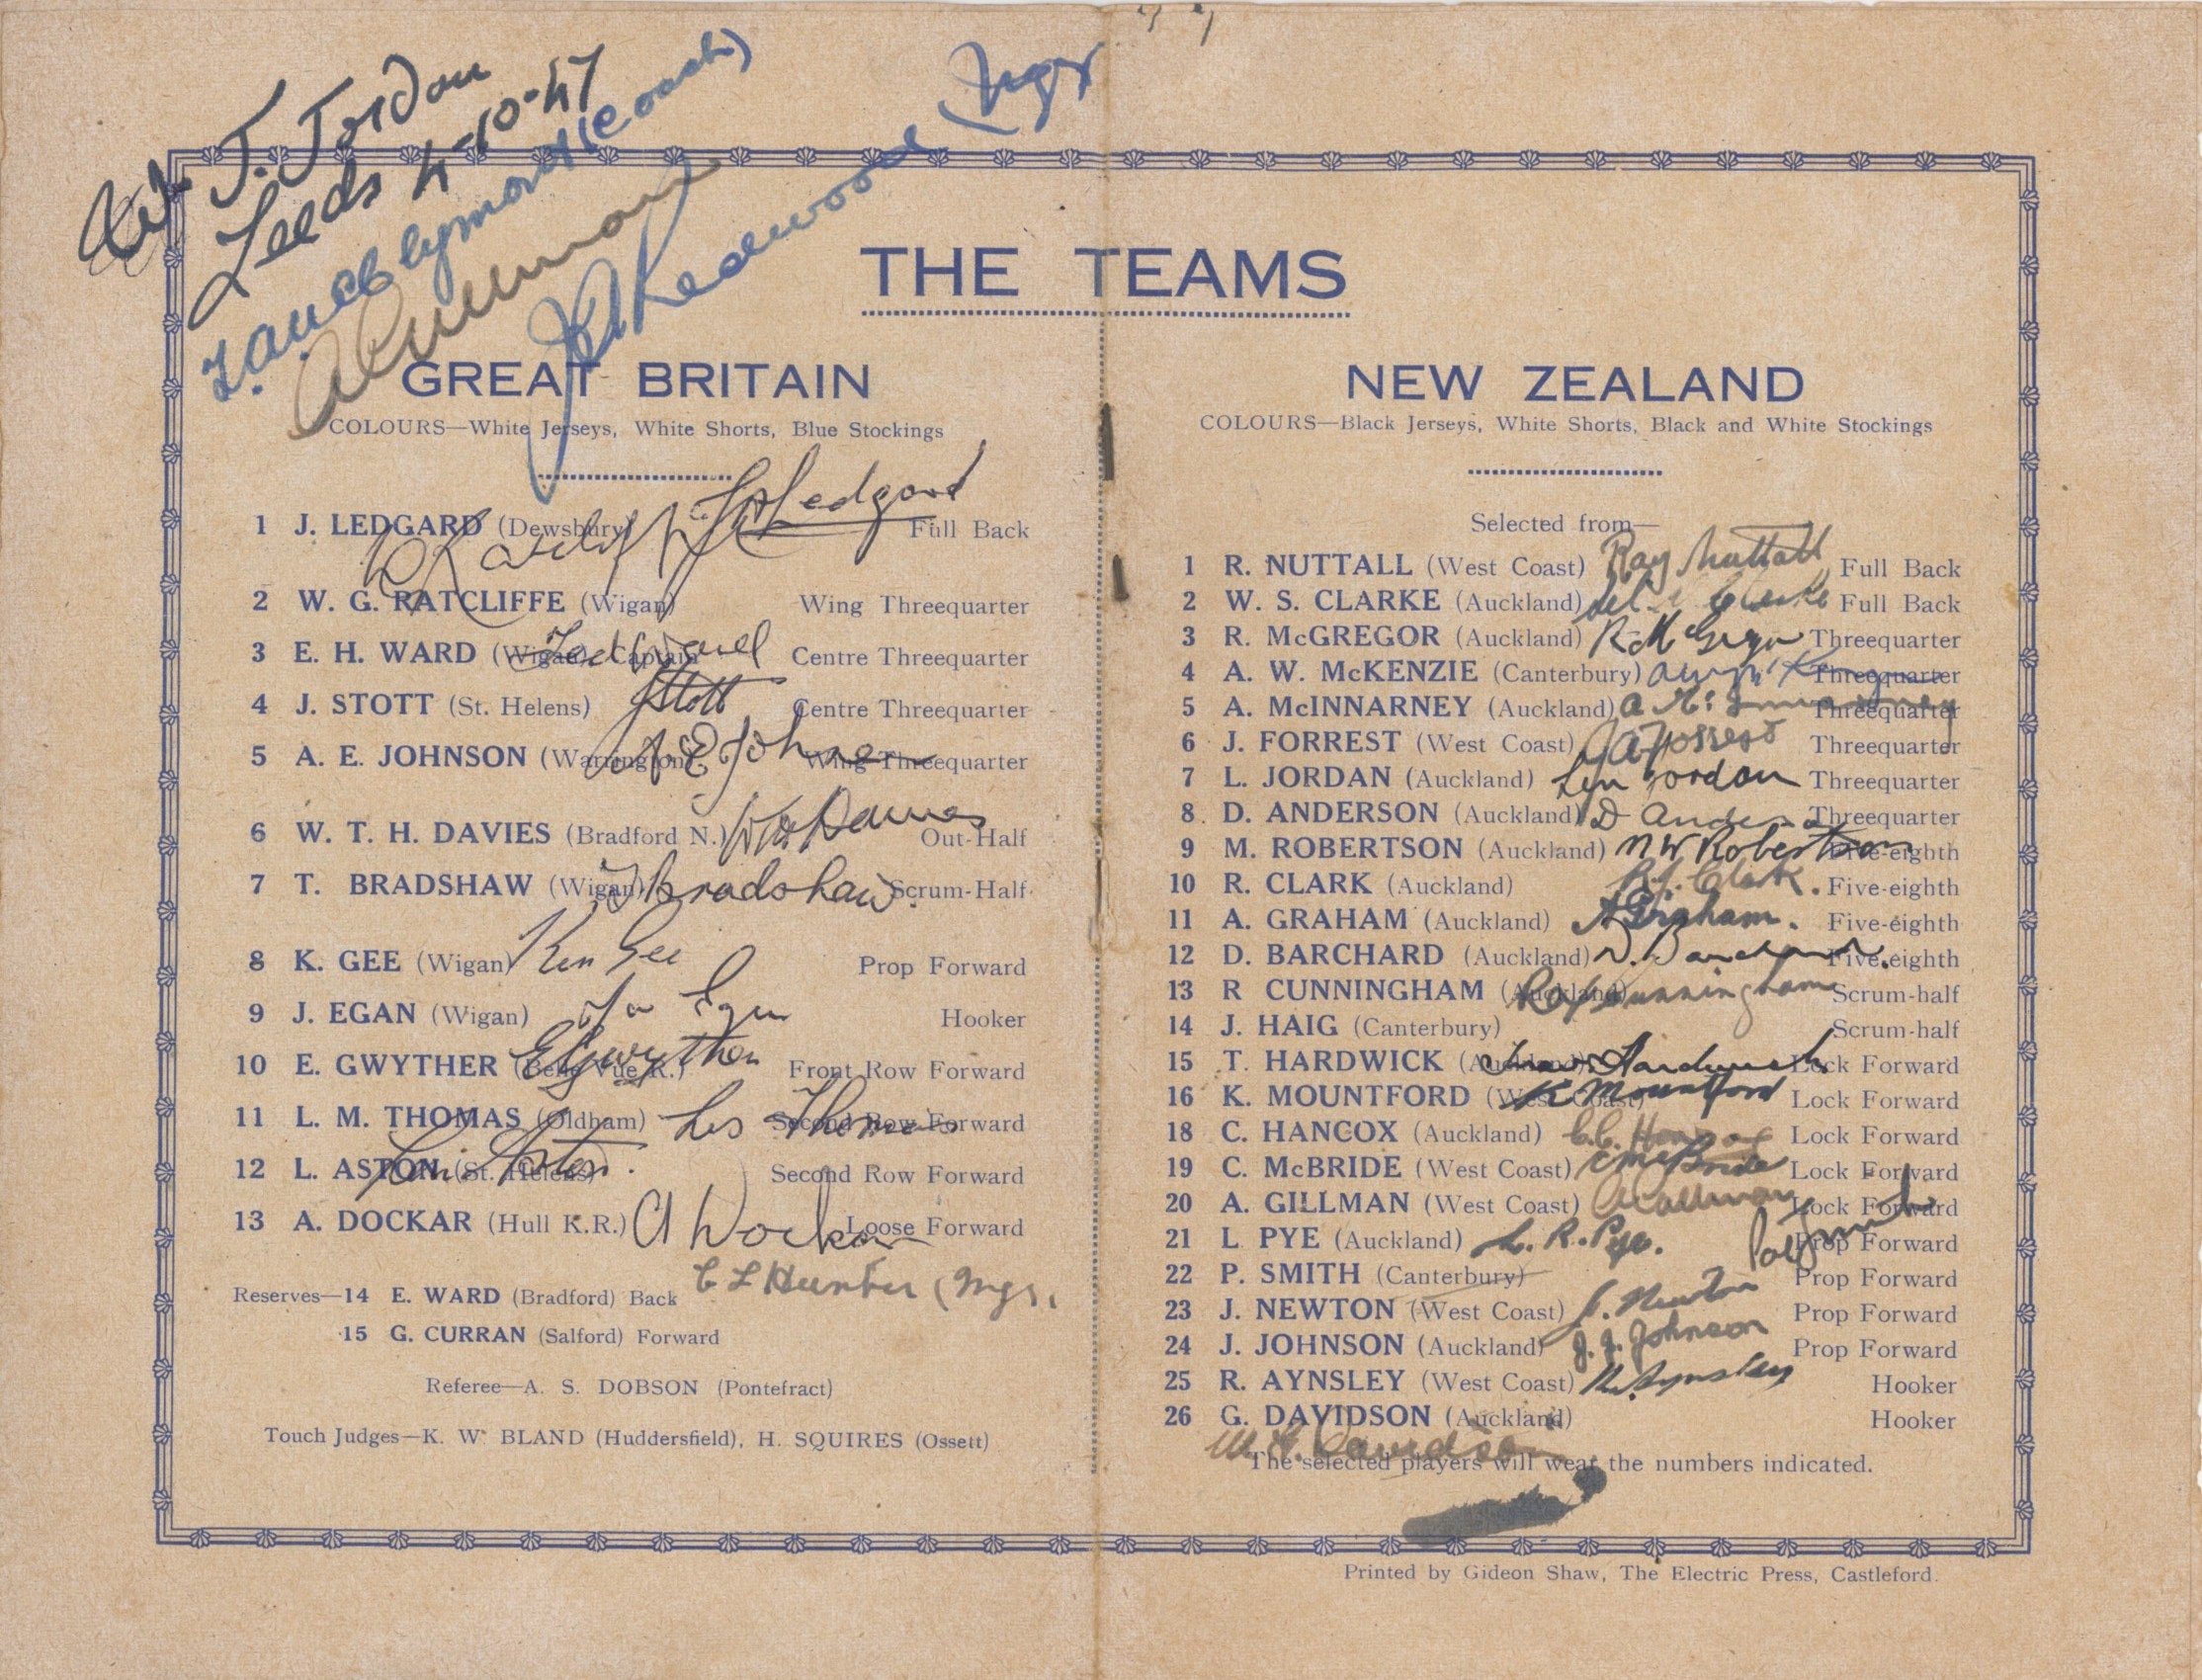 W. J. Jordan
Leeds 4-10-47
(Coach)
Redwood (Mgr
THE TEAMS
GREAT BRITAIN
COLOURS—White Jerseys, White Shorts, Blue Stockings
J Ledgard
1 J. LEDGARD (Dewsbury) Full Back
Ratcliffe
2 W. G. RATCLIFFE (Wigan) Wing Threequarter
3 E. H. WARD (Wigan) Captain Ted Ward Centre Threequarter
4 J. STOTT (St. Helens) J Stott Centre Threequarter
5 A. E. JOHNSON (Warrington) A E Johnson Wing Threequarter
6 W. T. H. DAVIES (Bradford N.) W T H Davies Out-Half
7 T. BRADSHAW (Wigan) T Bradshaw. Scrum-Half
8 K. GEE (Wigan) Ken Gee Prop Forward
9 J. EGAN (Wigan) Joe Egan Hooker
10 E. GWYTHER (Belle Vue R.) E Gwyther Front Row Forward
11 L. M. THOMAS (Oldham) Les Thomas Second Row Forward
12 L. ASTON (St. Helens) Len Aston. Second Row Forward
13 A. DOCKAR (Hull K.R.) A Dockar Loose Forward
C L Hunter (Mgr.
Reserves—14 E. WARD (Bradford) Back
15 G. CURRAN (Salford) Forward
Referee—A. S. DOBSON (Pontefract)
Touch Judges—K. W. BLAND (Huddersfield), H. SQUIRES (Ossett)
NEW ZEALAND
COLOURS—Black Jerseys, White Shorts, Black and White Stockings
Selected from—
1 R. NUTTALL (West Coast) Ray Nuttall Full Back
2 W. S. CLARKE (Auckland) Clarke Full Back
3 R. McGREGOR (Auckland) R McGregor Threequarter
4 A. W. McKENZIE (Canterbury) Threequarter
5 A. McINNARNEY (Auckland) A McInnarney Threequarter
6 J. FORREST (West Coast) J A Forrest Threequarter
7 L. JORDAN (Auckland) Len Jordan Threequarter
8 D. ANDERSON (Auckland) D Anderson Threequarter
9 M. ROBERTSON (Auckland) M W Robertson Five-eighth
10 R. CLARK (Auckland) R. J. Clark. Five-eighth
11 A. GRAHAM (Auckland) A Graham. Five-eighth
12 D. BARCHARD (Auckland) D. Barchard. Five-eighth
13 R CUNNINGHAM (Auckland) Roy Cunningham Scrum-half
14 J. HAIG (Canterbury) Scrum-half
15 T. HARDWICK (Auckland) Hardwick Lock Forward
16 K. MOUNTFORD (West Coast) K Mountford Lock Forward
18 C. HANCOX (Auckland) C. C. Hancox Lock Forward
19 C. McBRIDE (West Coast) C McBride Lock Forward
20 A. GILLMAN (West Coast) A Gillman Lock Forward
21 L PYE (Auckland) L. R. Pye. Prop Forward
22 P. SMITH (Canterbury) Pat Smith Prop Forward
23 J. NEWTON (West Coast) J. Newton Prop Forward
24 J. JOHNSON (Auckland) J. J. Johnson Prop Forward
25 R. AYNSLEY (West Coast) R. Aynsley Hooker
26 G. DAVIDSON (Auckland) Hooker
W. G. Davidson
The selected players will wear the numbers indicated.
Printed by Gideon Shaw, The Electric Press, Castleford.